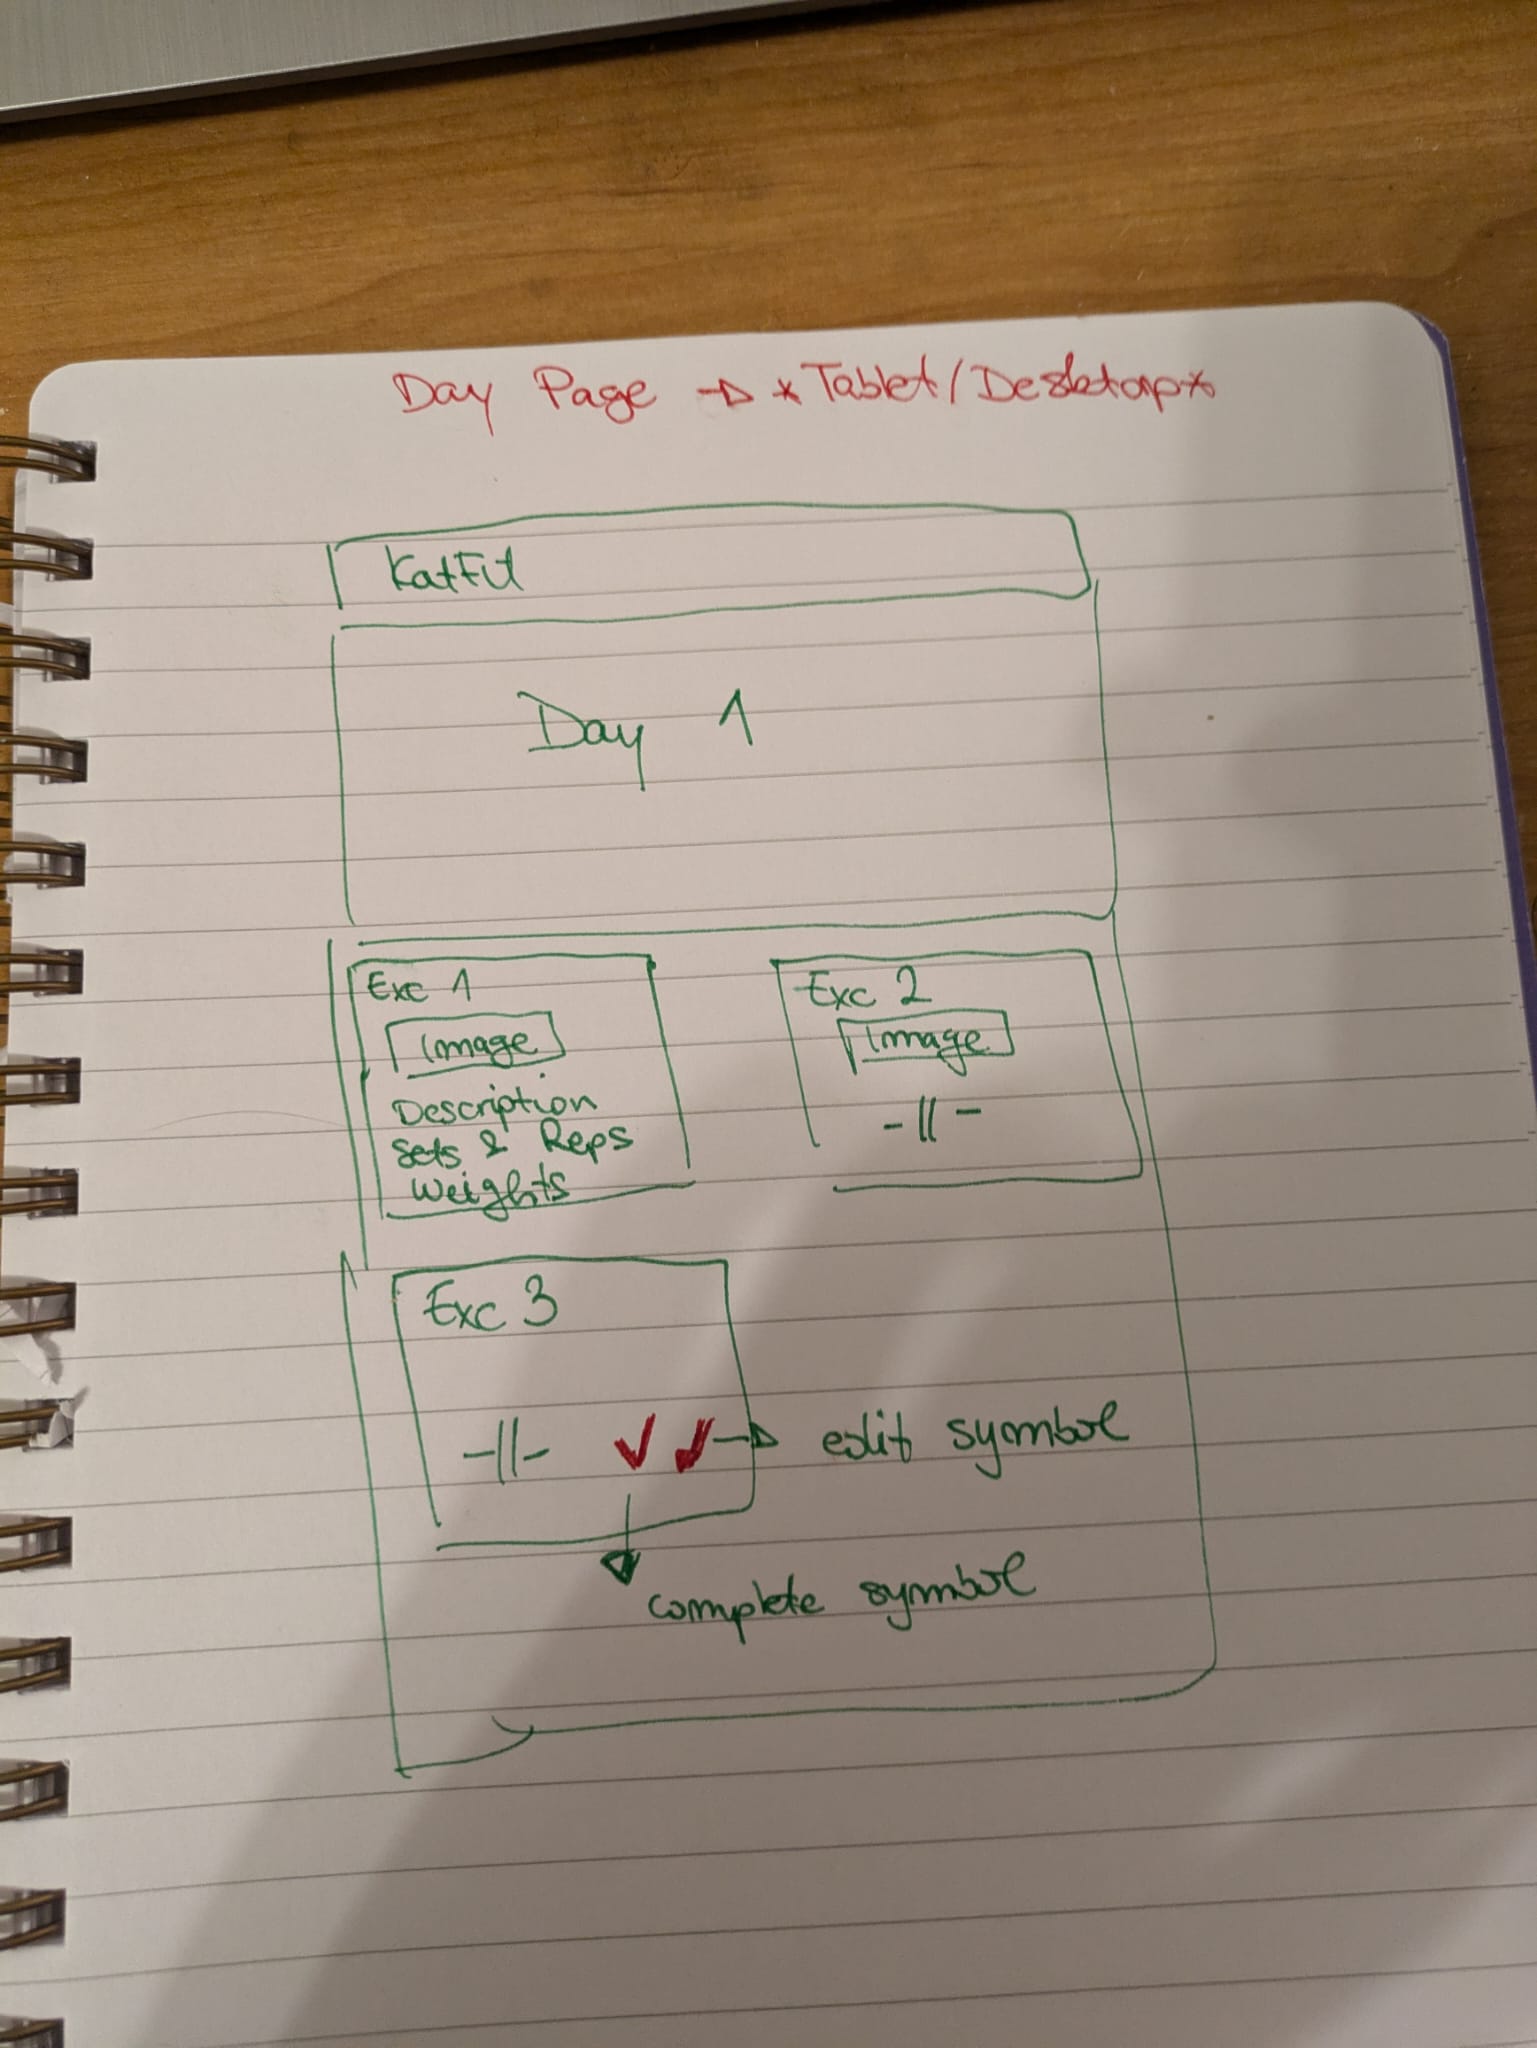 Day Page → * Tablet/Desktop *
KatFit
Day 1
Exc 1
Image
Description
Sets & Reps
Weights
Exc 2
Image
-||-
Exc 3
-||- ✓ ✓ → edit symbol
complete symbol